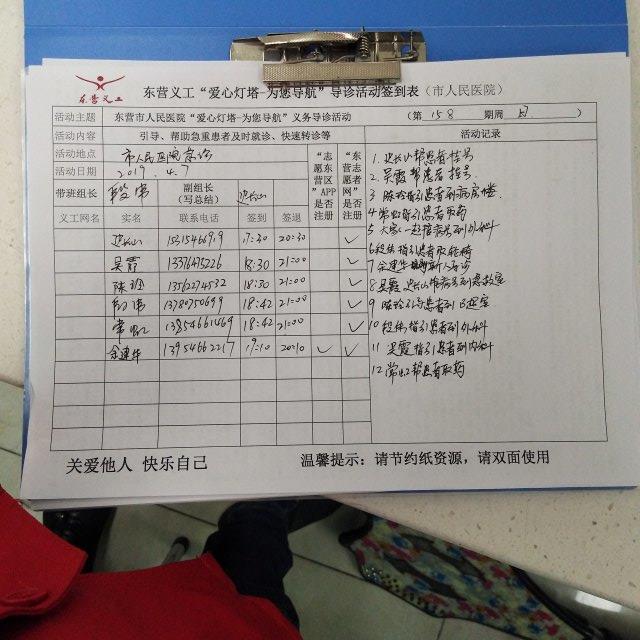 东营义工
东营义工“爱心灯塔–为您导航”导诊活动签到表（市人民医院）
活动主题 东营市人民医院“爱心灯塔–为您导航”义务导诊活动 （第 158 期周 日 ）
活动内容 引导、帮助急重患者及时就诊、快速转诊等 活动记录
活动地点 市人民医院急诊
活动日期 2019.4.7
带班组长 段伟 副组长（写总结）
“志愿东营区”APP是否注册
“东营志愿者网”是否注册
义工网名 实名 联系电话 签到 签退
17:30 20:30 ✓
吴霞 13376475226 18:30 21:00 ✓
陈玲 13562274532 18:30 21:00 ✓
段伟 13780750699 18:42 21:00 ✓
常虹 13854661469 18:42 21:00 ✓
余建华 13954662217 19:10 20:10 ✓ ✓
1. 帮患者挂号
2. 吴霞帮患者挂号.
3. 陈玲指引患者到病房楼.
4 常虹指引患者取药
5 大家一起
6 段伟指引患者取轮椅
7 余建华
8 吴霞
9 陈玲引导患者到
10 段伟指引患者到外科
11 吴霞指引患者到内科
12 常虹帮患者取药
关爱他人 快乐自己 温馨提示：请节约纸资源，请双面使用